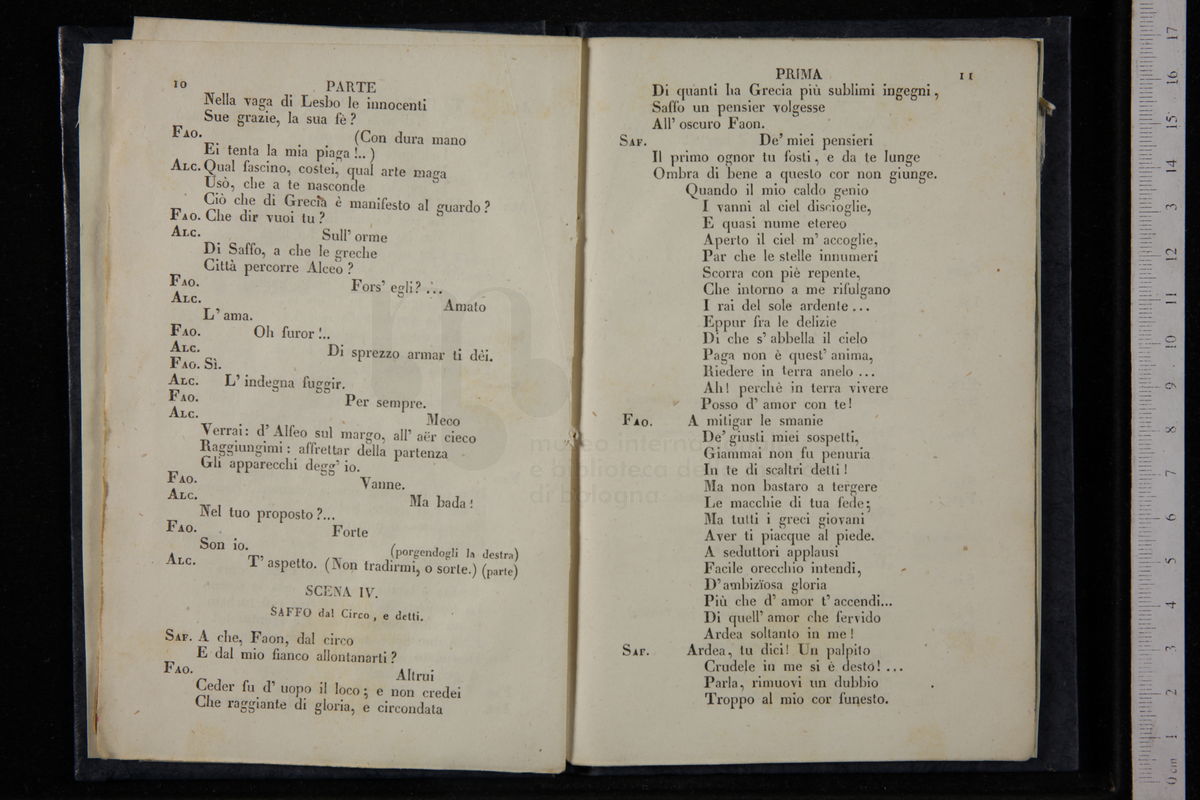 10 PARTE
Nella vaga di Lesbo le innocenti
Sue grazie, la sua fè?
FAO. (Con dura mano
Ei tenta la mia piaga!..)
ALC. Qual fascino, costei, qual arte maga
Usò, che a te nasconde
Ciò che di Grecia è manifesto al guardo?
FAO. Che dir vuoi tu?
ALC. Sull' orme
Di Saffo, a che le greche
Città percorre Alceo?
FAO. Fors' egli? ...
ALC. Amato
L' ama.
FAO. Oh furor!..
ALC. Di sprezzo armar ti dèi.
FAO. Sì.
ALC. L' indegna fuggir.
FAO. Per sempre.
ALC. Meco
Verrai: d' Alfeo sul margo, all' aër cieco
Raggiungimi: affrettar della partenza
Gli apparecchi degg' io.
FAO. Vanne.
ALC. Ma bada!
Nel tuo proposto?...
FAO. Forte
Son io. (porgendogli la destra)
ALC. T' aspetto. (Non tradirmi, o sorte.) (parte)
SCENA IV.
SAFFO dal Circo, e detti.
SAF. A che, Faon, dal circo
E dal mio fianco allontanarti?
FAO. Altrui
Ceder fu d' uopo il loco; e non credei
Che raggiante di gloria, e circondata
PRIMA 11
Di quanti ha Grecia più sublimi ingegni,
Saffo un pensier volgesse
All' oscuro Faon.
SAF. De' miei pensieri
Il primo ognor tu fosti, e da te lunge
Ombra di bene a questo cor non giunge.
Quando il mio caldo genio
I vanni al ciel discioglie,
E quasi nume etereo
Aperto il ciel m' accoglie,
Par che le stelle innumeri
Scorra con piè repente,
Che intorno a me rifulgano
I rai del sole ardente...
Eppur fra le delizie
Di che s' abbella il cielo
Paga non è quest' anima,
Riedere in terra anelo ...
Ah! perchè in terra vivere
Posso d' amor con te!
FAO. A mitigar le smanie
De' giusti miei sospetti,
Giammai non fu penuria
In te di scaltri detti!
Ma non bastaro a tergere
Le macchie di tua fede;
Ma tutti i greci giovani
Aver ti piacque al piede.
A seduttori applausi
Facile orecchio intendi,
D' ambizïosa gloria
Più che d' amor t' accendi...
Di quell' amor che fervido
Ardea soltanto in me!
SAF. Ardea, tu dici! Un palpito
Crudele in me si è desto! ...
Parla, rimuovi un dubbio
Troppo al mio cor funesto.
museo interna
e biblioteca de
di bologna
0 cm 1 2 3 4 5 6 7 8 9 10 11 12 13 14 15 16 17